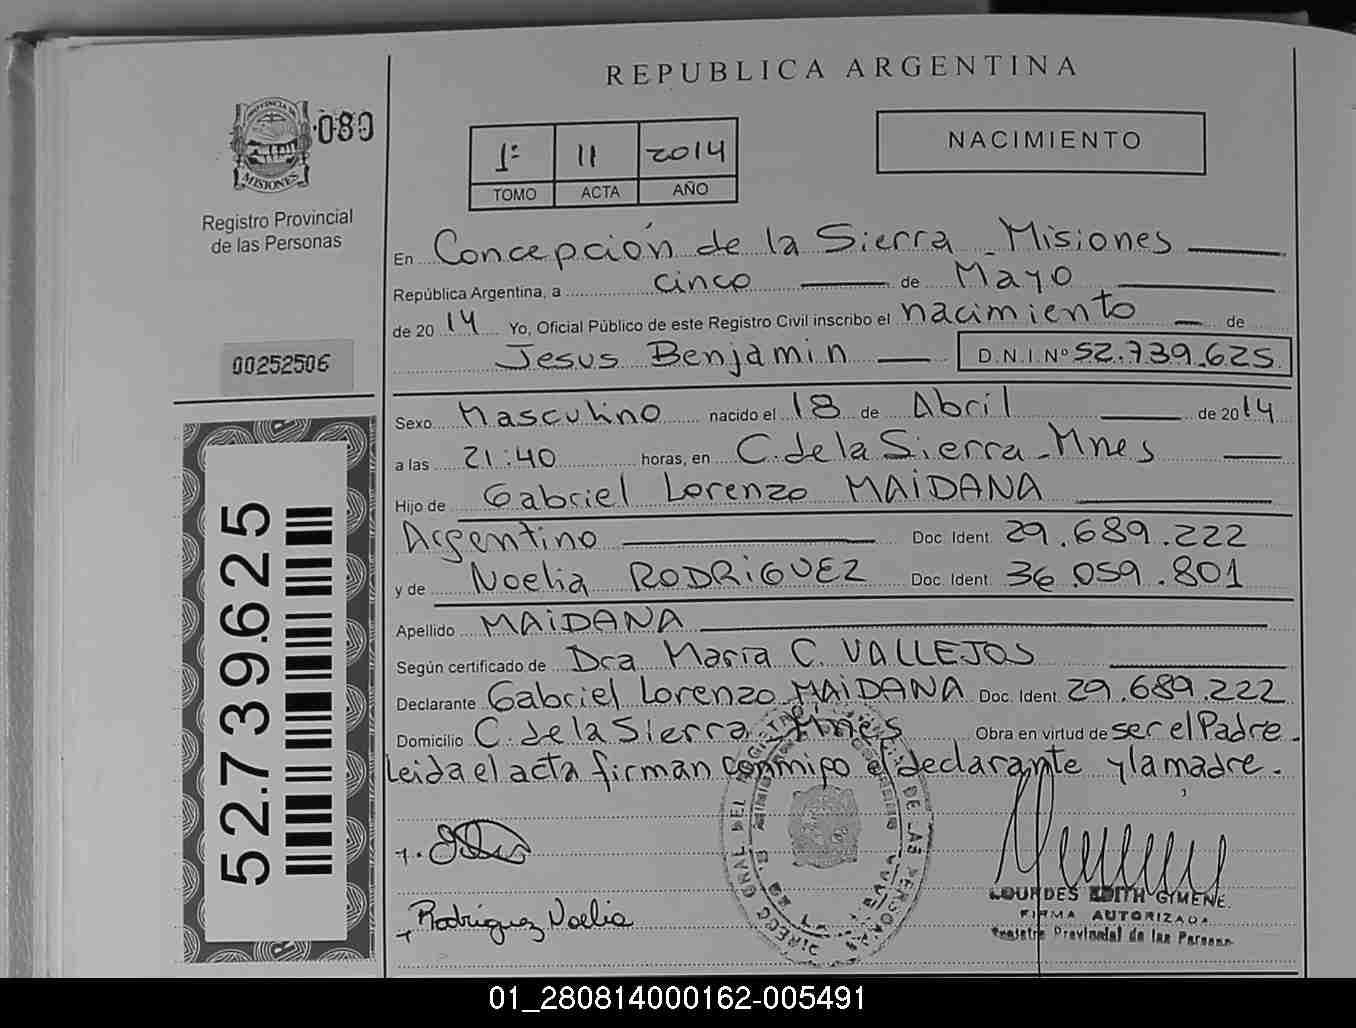 REPUBLICA ARGENTINA
PROVINCIA DE
MISIONES
080
Registro Provincial
de las Personas
00252506
52.739.625
1º 11 2014
TOMO ACTA AÑO
NACIMIENTO
En Concepción de la Sierra - Misiones
República Argentina, a cinco de Mayo
de 2014 Yo, Oficial Público de este Registro Civil inscribo el nacimiento de
Jesus Benjamin D.N.I. Nº 52.739.625
Sexo Masculino nacido el 18 de Abril de 2014
a las 21:40 horas, en C. de la Sierra - Mnes
Hijo de Gabriel Lorenzo MAIDANA
Argentino Doc. Ident. 29.689.222
y de Noelia RODRIGUEZ Doc. Ident. 36.059.801
Apellido MAIDANA
Según certificado de Dra Maria C. VALLEJOS
Declarante Gabriel Lorenzo MAIDANA Doc. Ident. 29.689.222
Domicilio C. de la Sierra - Mnes Obra en virtud de ser el Padre.
Leida el acta firman conmigo el declarante y la madre.
Rodriguez Noelia
LOURDES EDITH GIMENE.
FIRMA AUTORIZADA
Registro Provincial de las Personas
01_280814000162-005491